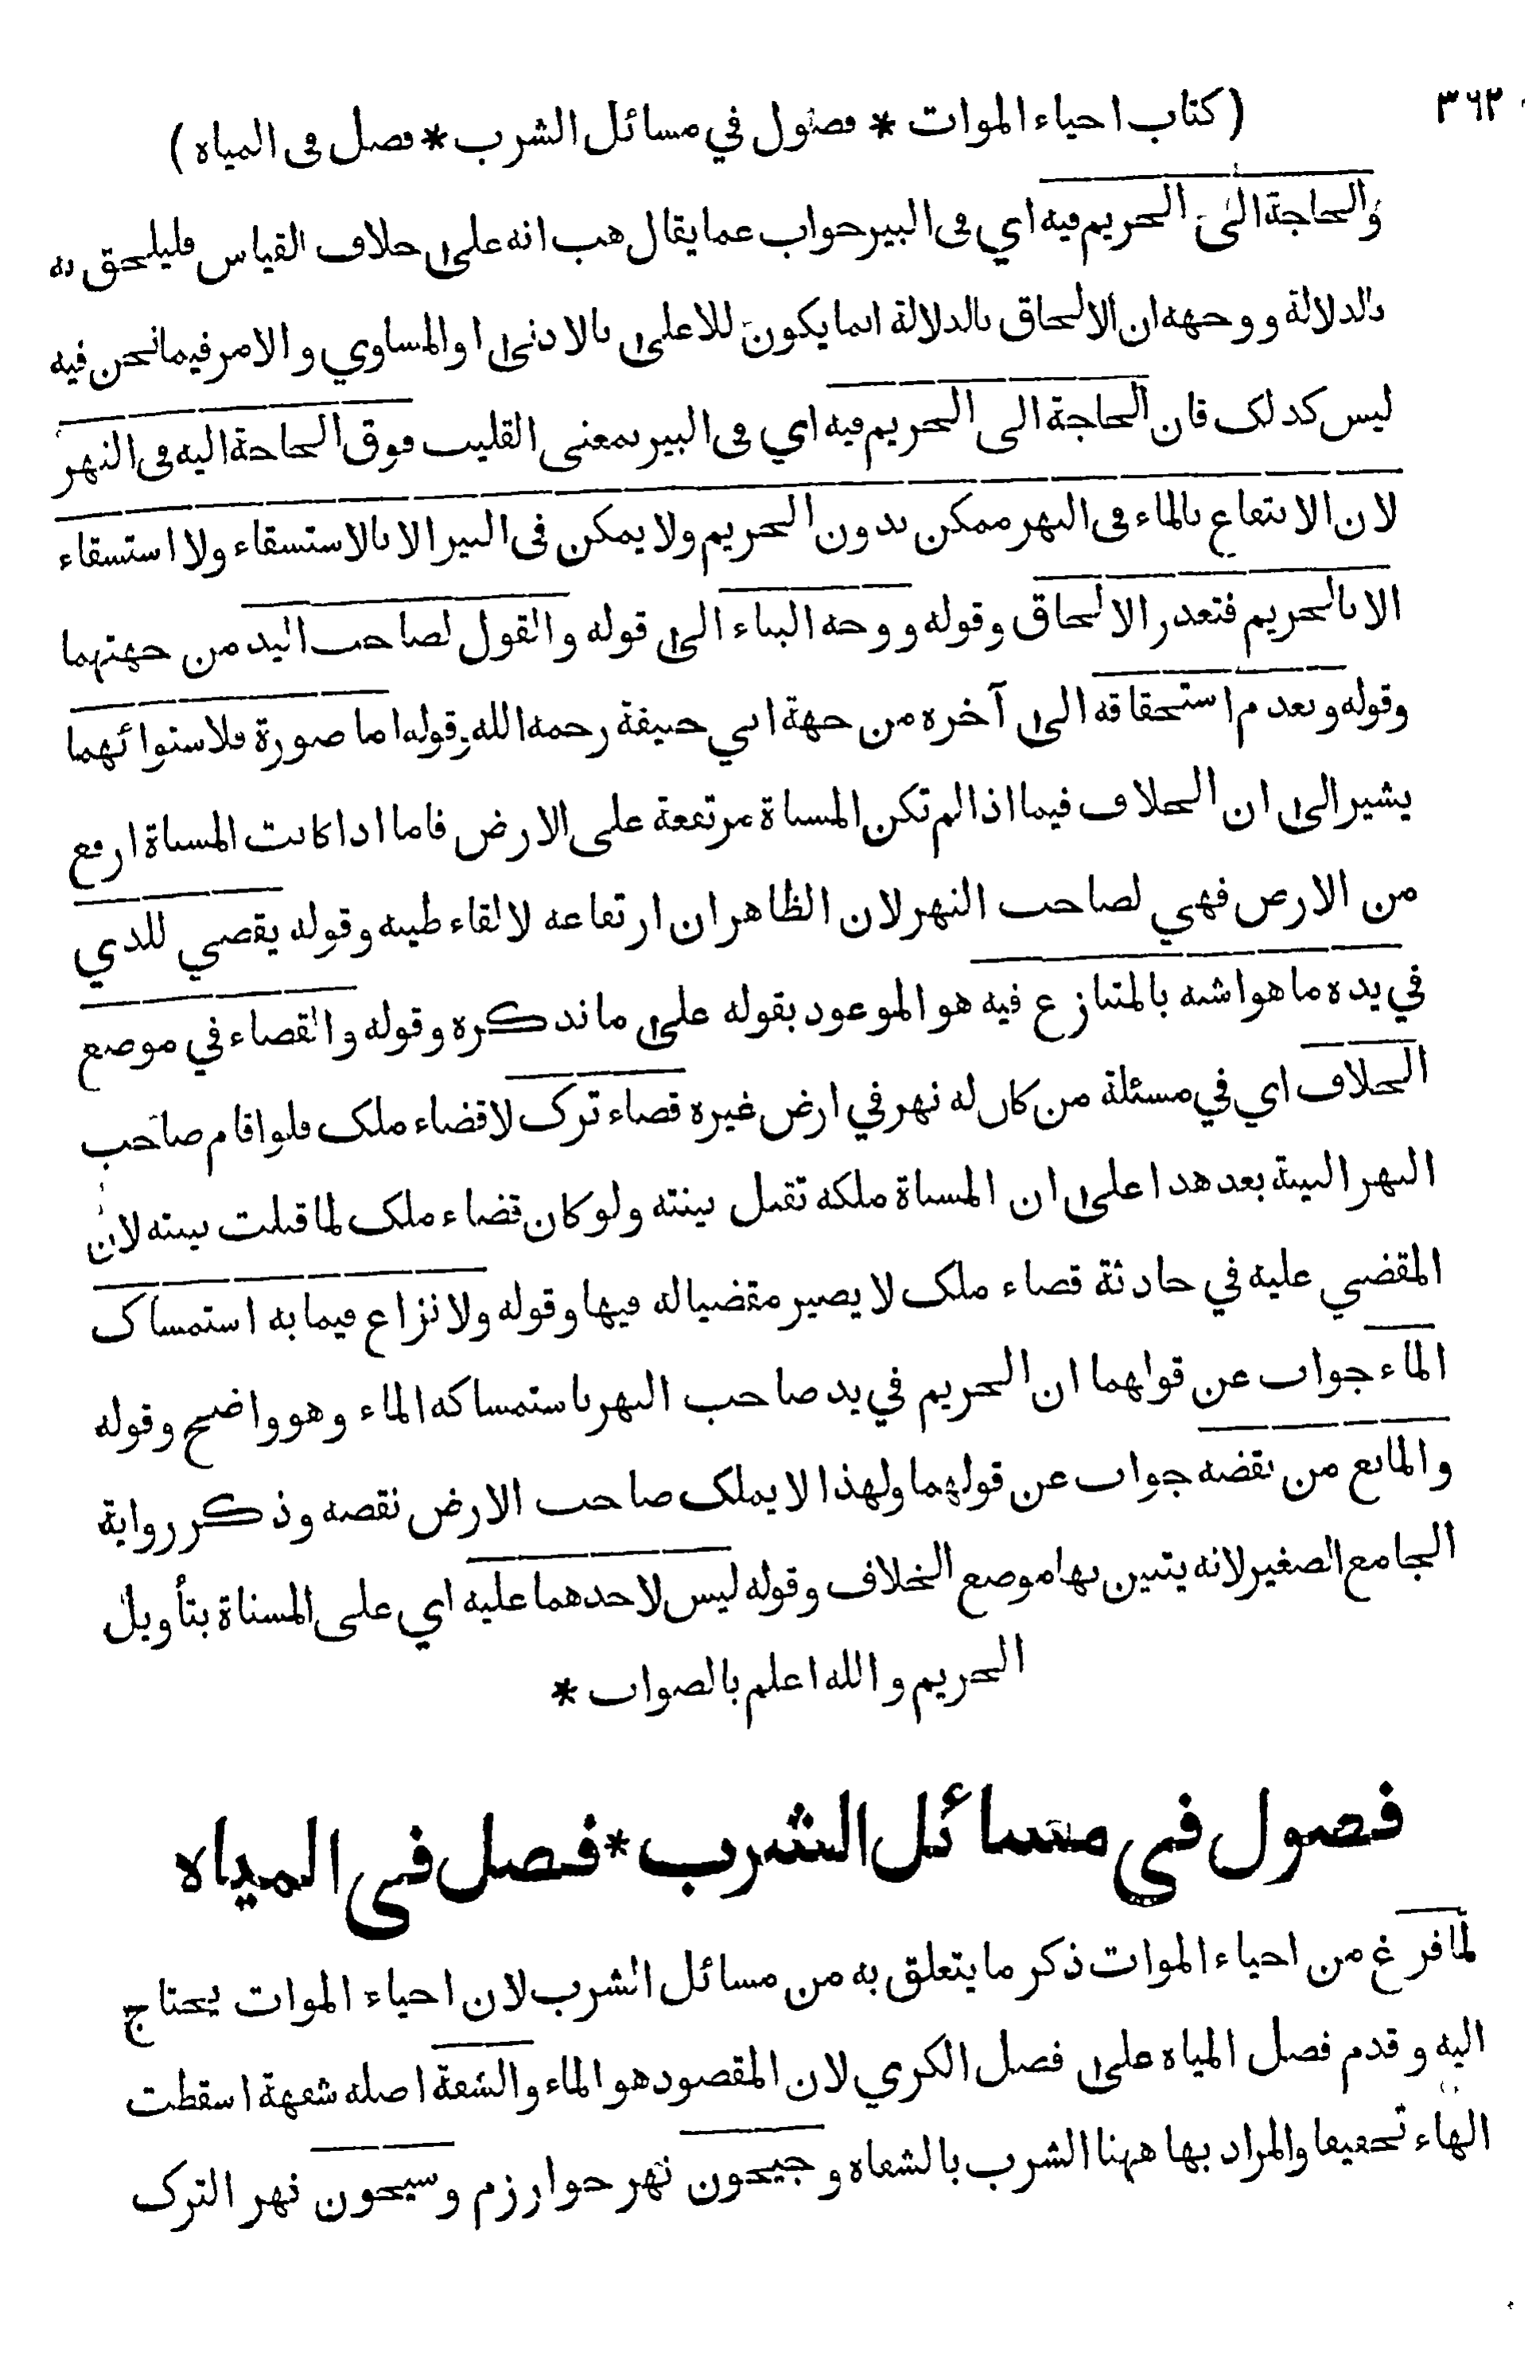 ٣٦٢ ( كتاب احياء الموات * فصول في مسائل الشرب * فصل في المياه )
والحاجة الى الحريم فيه اي في البير جواب عما يقال هب انه على خلاف القياس فليلحق به
بالدلالة ووجهه ان الالحاق بالدلالة انما يكون للاعلى بالادنى او المساوي والامر فيما نحن فيه
ليس كذلك فان الحاجة الى الحريم فيه اي في البير بمعنى القليب فوق الحاجة اليه في النهر
لان الانتفاع بالماء في النهر ممكن بدون الحريم ولا يمكن في البير الا بالاستسقاء ولا استسقاء
الا بالحريم فتعذر الالحاق وقوله ووجه البناء الى قوله والقول لصاحب اليد من جهتهما
وقوله وبعدم استحقاقه الى آخره من جهة ابي حنيفة رحمه الله وقوله اما صورة فلاستوائهما
يشير الى ان الخلاف فيما اذا لم تكن المسناة مرتفعة على الارض فاما اذا كانت المسناة ارفع
من الارض فهي لصاحب النهر لان الظاهر ان ارتفاعه لالقاء طينه وقوله يقضي للذي
في يده ما هو اشبه بالمتنازع فيه هو الموعود بقوله على ما نذكره وقوله والقضاء في موضع
الخلاف اي في مسئلة من كان له نهر في ارض غيره قضاء ترك لا قضاء ملك فلو اقام صاحب
النهر البينة بعد هذا على ان المسناة ملكه تقبل بينته ولو كان قضاء ملك لما قبلت بينته لان
المقضي عليه في حادثة قضاء ملك لا يصير مقضيا له فيها وقوله ولا نزاع فيما به استمساك
الماء جواب عن قولهما ان الحريم في يد صاحب النهر باستمساكه الماء وهو واضح وقوله
والمانع من نقضه جواب عن قولهما ولهذا لا يملك صاحب الارض نقضه وذكر رواية
الجامع الصغير لانه يتبين بها موضع الخلاف وقوله ليس لاحدهما عليه اي على المسناة بتأويل
الحريم والله اعلم بالصواب *
فصول في مسائل الشرب * فصل في المياه
لما فرغ من احياء الموات ذكر ما يتعلق به من مسائل الشرب لان احياء الموات يحتاج
اليه وقدم فصل المياه على فصل الكري لان المقصود هو الماء والشفة اصله شفهة اسقطت
الهاء تخفيفا والمراد بها ههنا الشرب بالشفاه وجيحون نهر خوارزم وسيحون نهر الترك